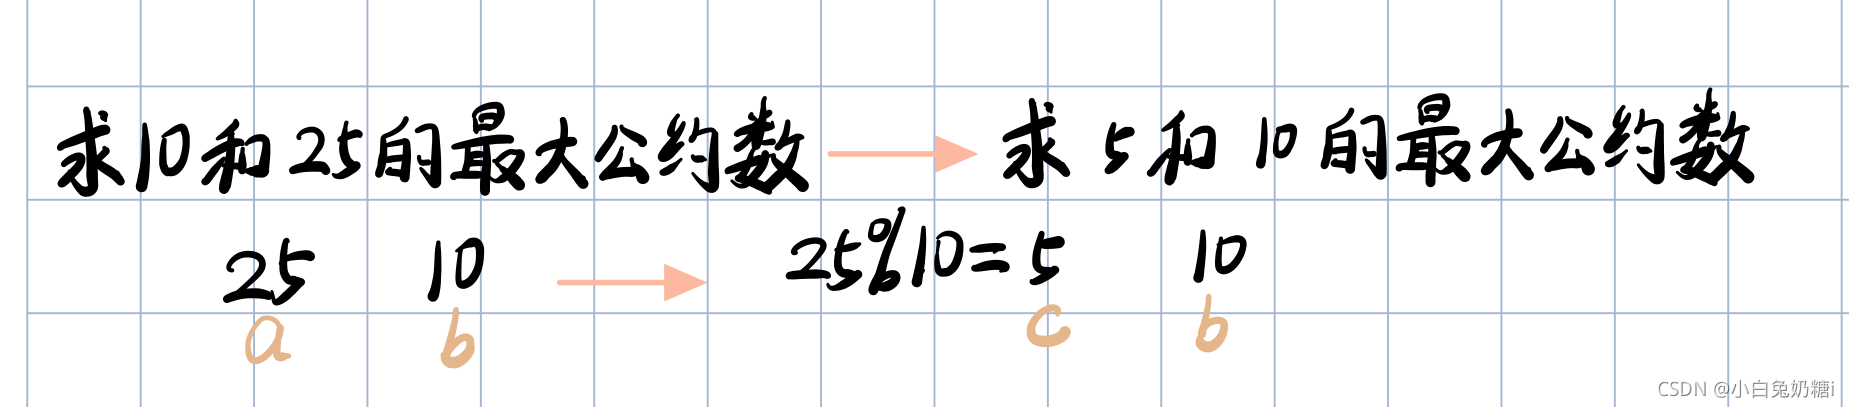 求10和25的最大公约数 求 5和 10的最大公约数
25 10 25%10=5 10
a b c b
CSDN @小白兔奶糖i